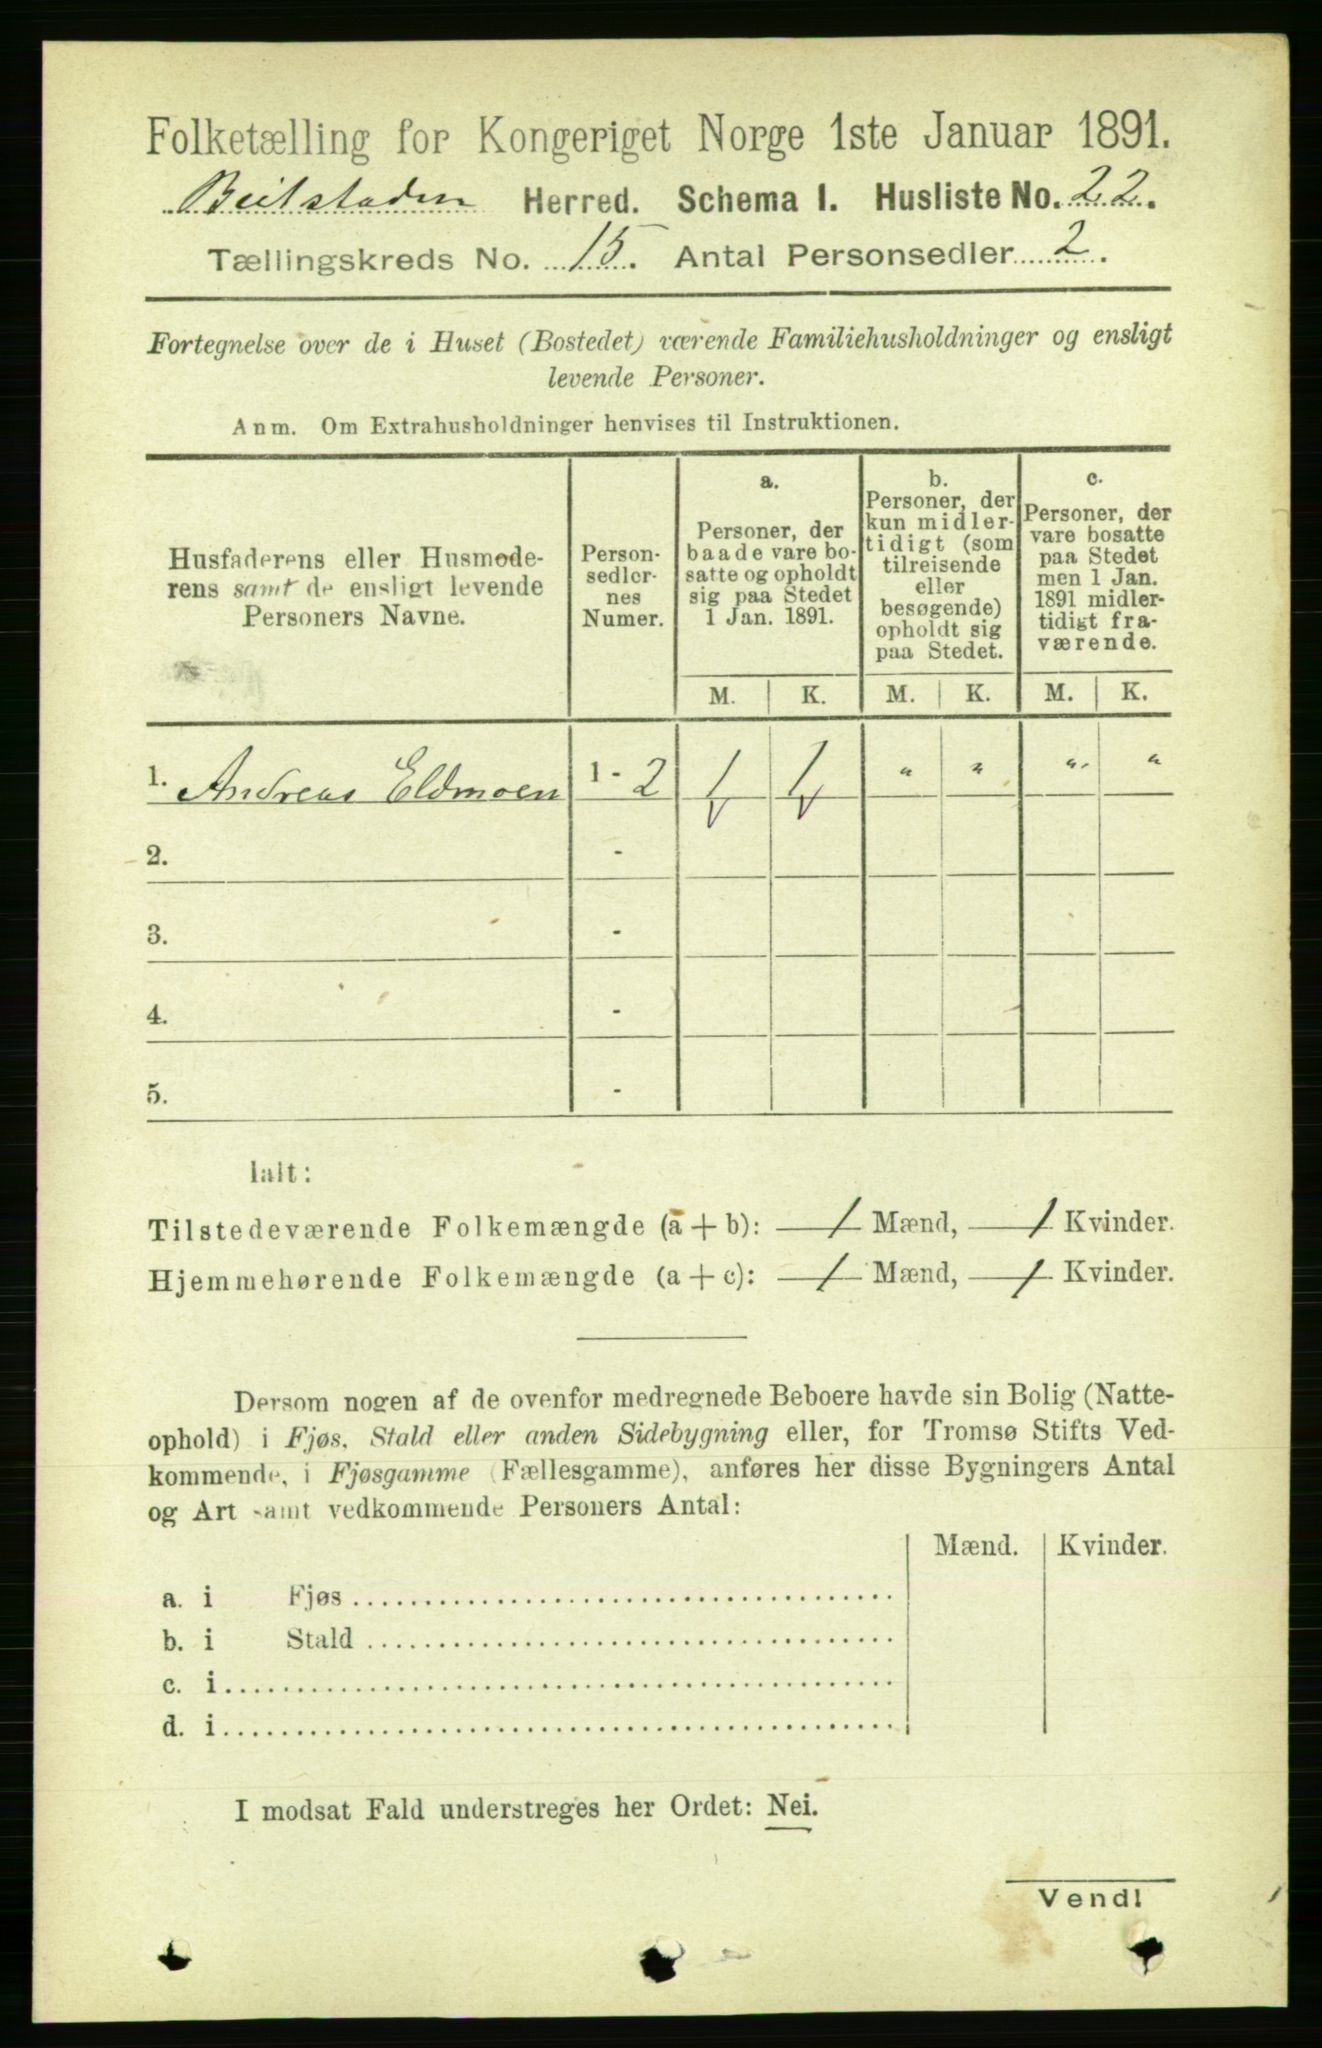 Folketælling for Kongeriget Norge 1ste Januar 1891.
Beitstaden Herred. Schema I. Husliste No. 22.
Tællingskreds No. 15. Antal Personsedler 2.
Fortegnelse over de i Huset (Bostedet) værende Familiehusholdninger og ensligt
levende Personer.
Anm. Om Extrahusholdninger henvises til Instruktionen.
Husfaderens eller Husmode-
rens samt de ensligt levende
Personers Navne.
Person-
sedler-
nes
Numer.
a.
Personer, der
baade vare bo-
satte og opholdt
sig paa Stedet
1 Jan. 1891.
b.
Personer, der
kun midler-
tidigt (som
tilreisende
eller
besøgende)
opholdt sig
paa Stedet.
c.
Personer, der
vare bosatte
paa Stedet
men 1 Jan.
1891 midler-
tidigt fra-
værende.
M. K. M. K. M. K.
1. Andreas Eldmoen 1 - 2 1 1 " " " "
2. -
3. -
4. -
5. -
Ialt:
Tilstedeværende Folkemængde (a + b): 1 Mænd, 1 Kvinder.
Hjemmehørende Folkemængde (a + c): 1 Mænd, 1 Kvinder.
Dersom nogen af de ovenfor medregnede Beboere havde sin Bolig (Natte-
ophold) i Fjøs, Stald eller anden Sidebygning eller, for Tromsø Stifts Ved-
kommende, i Fjøsgamme (Fællesgamme), anføres her disse Bygningers Antal
og Art samt vedkommende Personers Antal:
Mænd. Kvinder.
a. i Fjøs
b. i Stald
c. i
d. i
I modsat Fald understreges her Ordet: Nei.
Vend!